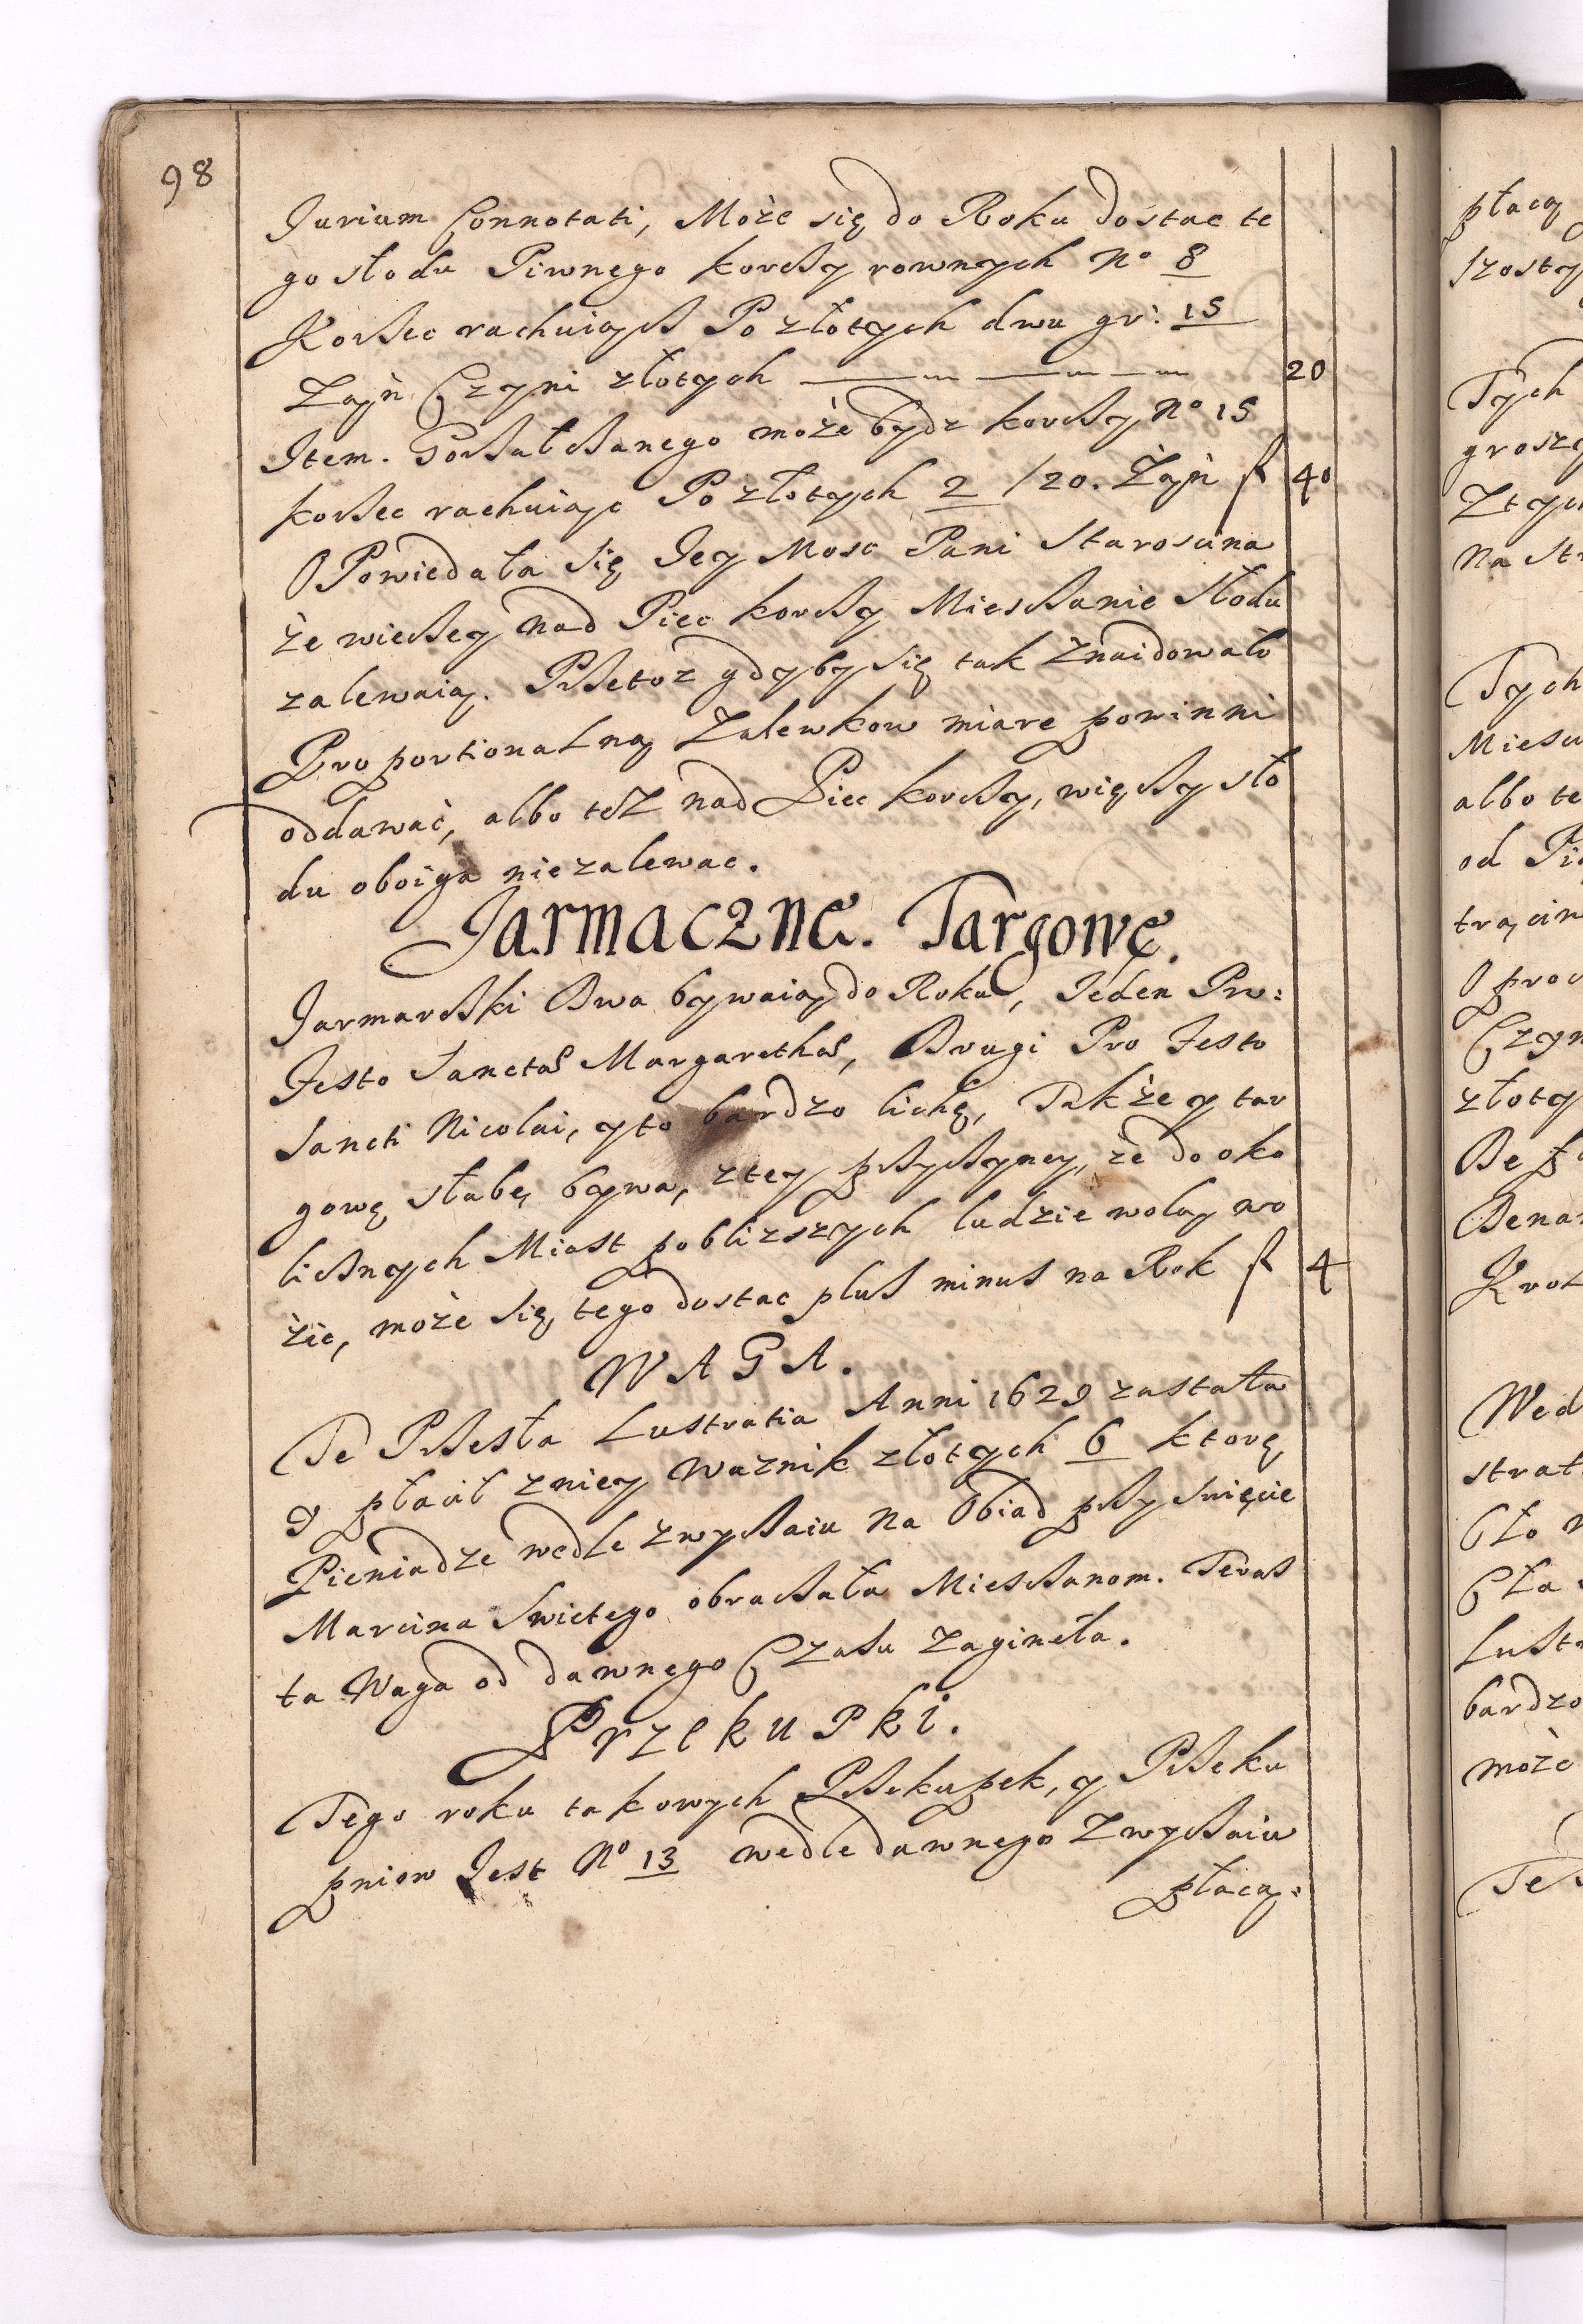 98
Jurium Connotati, Może się do Roku dostac te
go słodu Piwnego korczy rownych No 8
Korzec rachuiącz Po złotych dwu gr: 15
Zajn Czyni złotych 20
Item. Gorzałczanego może bydz korczy No 15
korzec rachuiąc Po złotych 2 /20. Zajn f 40
OPowiedała się Jey Mosc Pani Starościna
że wieczey nad Piec korczy Miesczanie słodu
zalewaią. Przetoz gdyby się tak znaidowało
Proportionalną Zalewkow miare powinni
oddawać, albo tesz nad Piec korczy, więczy sło
du oboiga niezalewac.
Jarmaczne. Targowę.
Jarmarczki Dwa bywaią do Roku, Jeden Pro:
Festo Sanctae Margarethae, Drugi Pro Festo
Sancti Nicolai, y to bardzo lichę, Także y tar
gowę słabę bywa, z tey przyczyney, że do oko
licznych Miast pobliższych ludzie wolą wo
zic, może się tego dostac plus minus na Rok f 4
WAGA.
Te Przeszła Lustratia Anni 1629 zastała
y płacił zniey Waznik złotych 6 ktorę
Pieniadze wedle zwyczaiu na Obiad przy Swięcie
Marcina Swietego obraczała Miesczanom. Teras
ta Waga od dawnego Czasu Zagineła.
Przekupki.
Tego roku takowych Przekupek, y Przeku
pniow Jest No 13 wedle dawnego Zwyczaiu
płacą:
płacą
szosty
Tych
grosze
Ztych
Na St
Tych
Miesc
albo te
od Pi
trącin
Oproc
Czyn
złoty
Be
Denar
Krot
Wed
strat
Cło
Cła
Lust
bardzo
może
Te